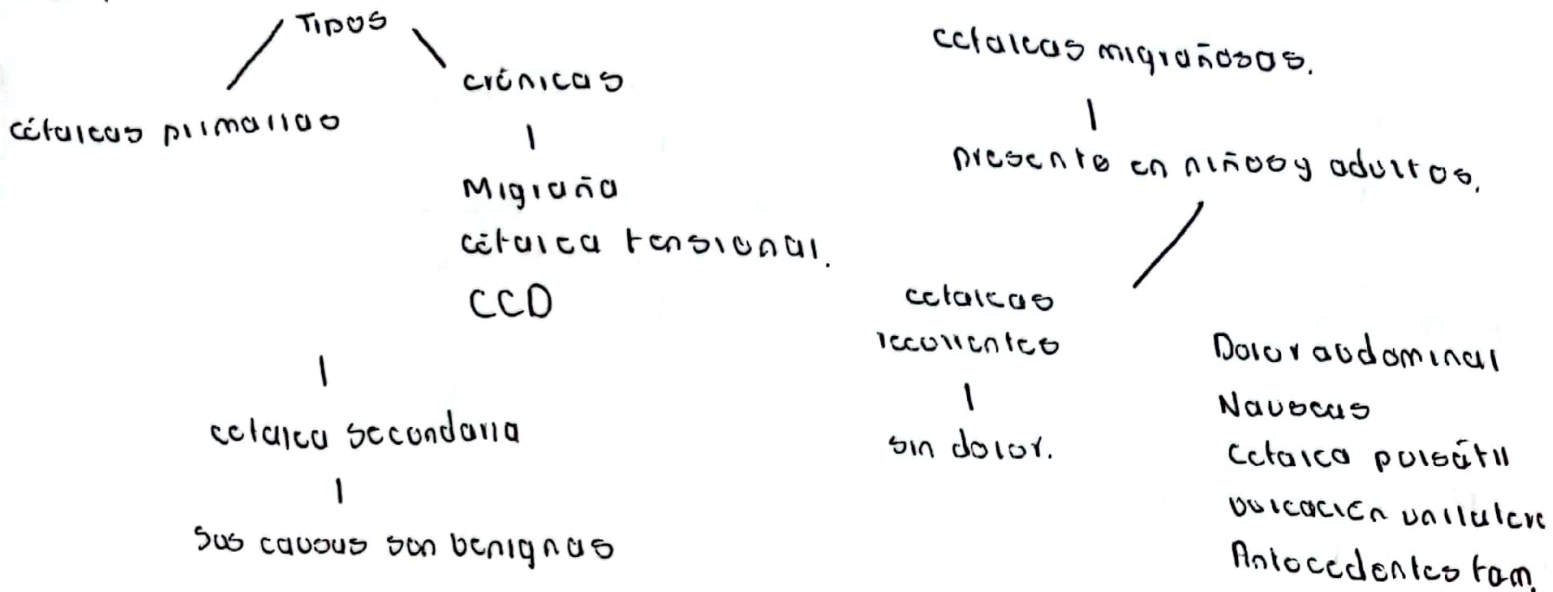 Tipos
céfaleas primarias
crónicas
Migraña
céfalea tensional.
CCD
cefalea secondaria
Sus causas son benignas
cefaleas migrañosas.
presente en niños y adultos.
cefaleas
recurrentes
sin dolor.
Dolor abdominal
Nauseas
Cefalea pulsátil
ubicación
Antecedentes fam.